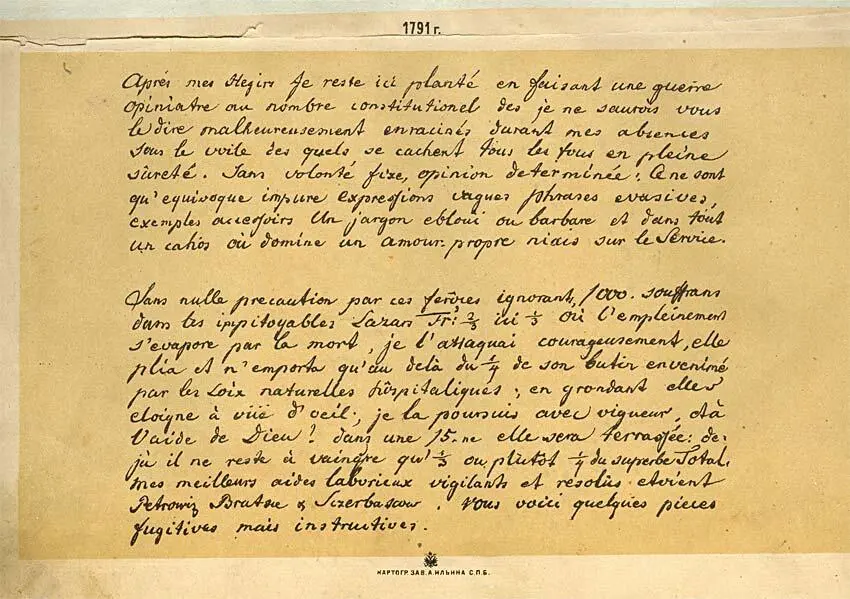 1791 г.
Après mes Hegirs Je reste ici planté en faisant une guerre
opiniatre au nombre constitutionel des je ne saurois vous
le dire malheureusement enracinés durant mes absences
sous le voile des quels se cachent tous les fous en pleine
sûreté. Sans volonté fixe, opinion determinée; Ce ne sont
qu'equivoque impure expressions vagues phrases evasives,
exemples accessoirs Un jargon ebloui ou barbare et dans tout
un cahos où domine un amour-propre niais sur le Service.
Sans nulle precaution par ces ferôces ignorant, 1000. souffrans
dans les impitoyables Lazars 2/3 ici 1/3 où l'empleinement
s'evapore par la mort, je l'attaquai courageusement, elle
plia et n'emporta qu'au delà du 1/4 de son butin envenimé
par les Loix naturelles hôspitaliques; en grondant elle s
eloigne à vüe d'oeil; je la poursuis avec vigueur, et à
l'aide de Dieu! dans une 15.ne elle sera terrassée: de-
jà il ne reste à vaingre qu' 1/3 ou plutot 1/4 du superbe Total.
mes meilleurs aides laborieux vigilants et resolus etoient
Petrowiz Bratse & Sczerbascow. Vous voici quelques pieces
fugitives mais instructives.
КАРТОГР. ЗАВ. А. ИЛЬИНА С.П.Б.